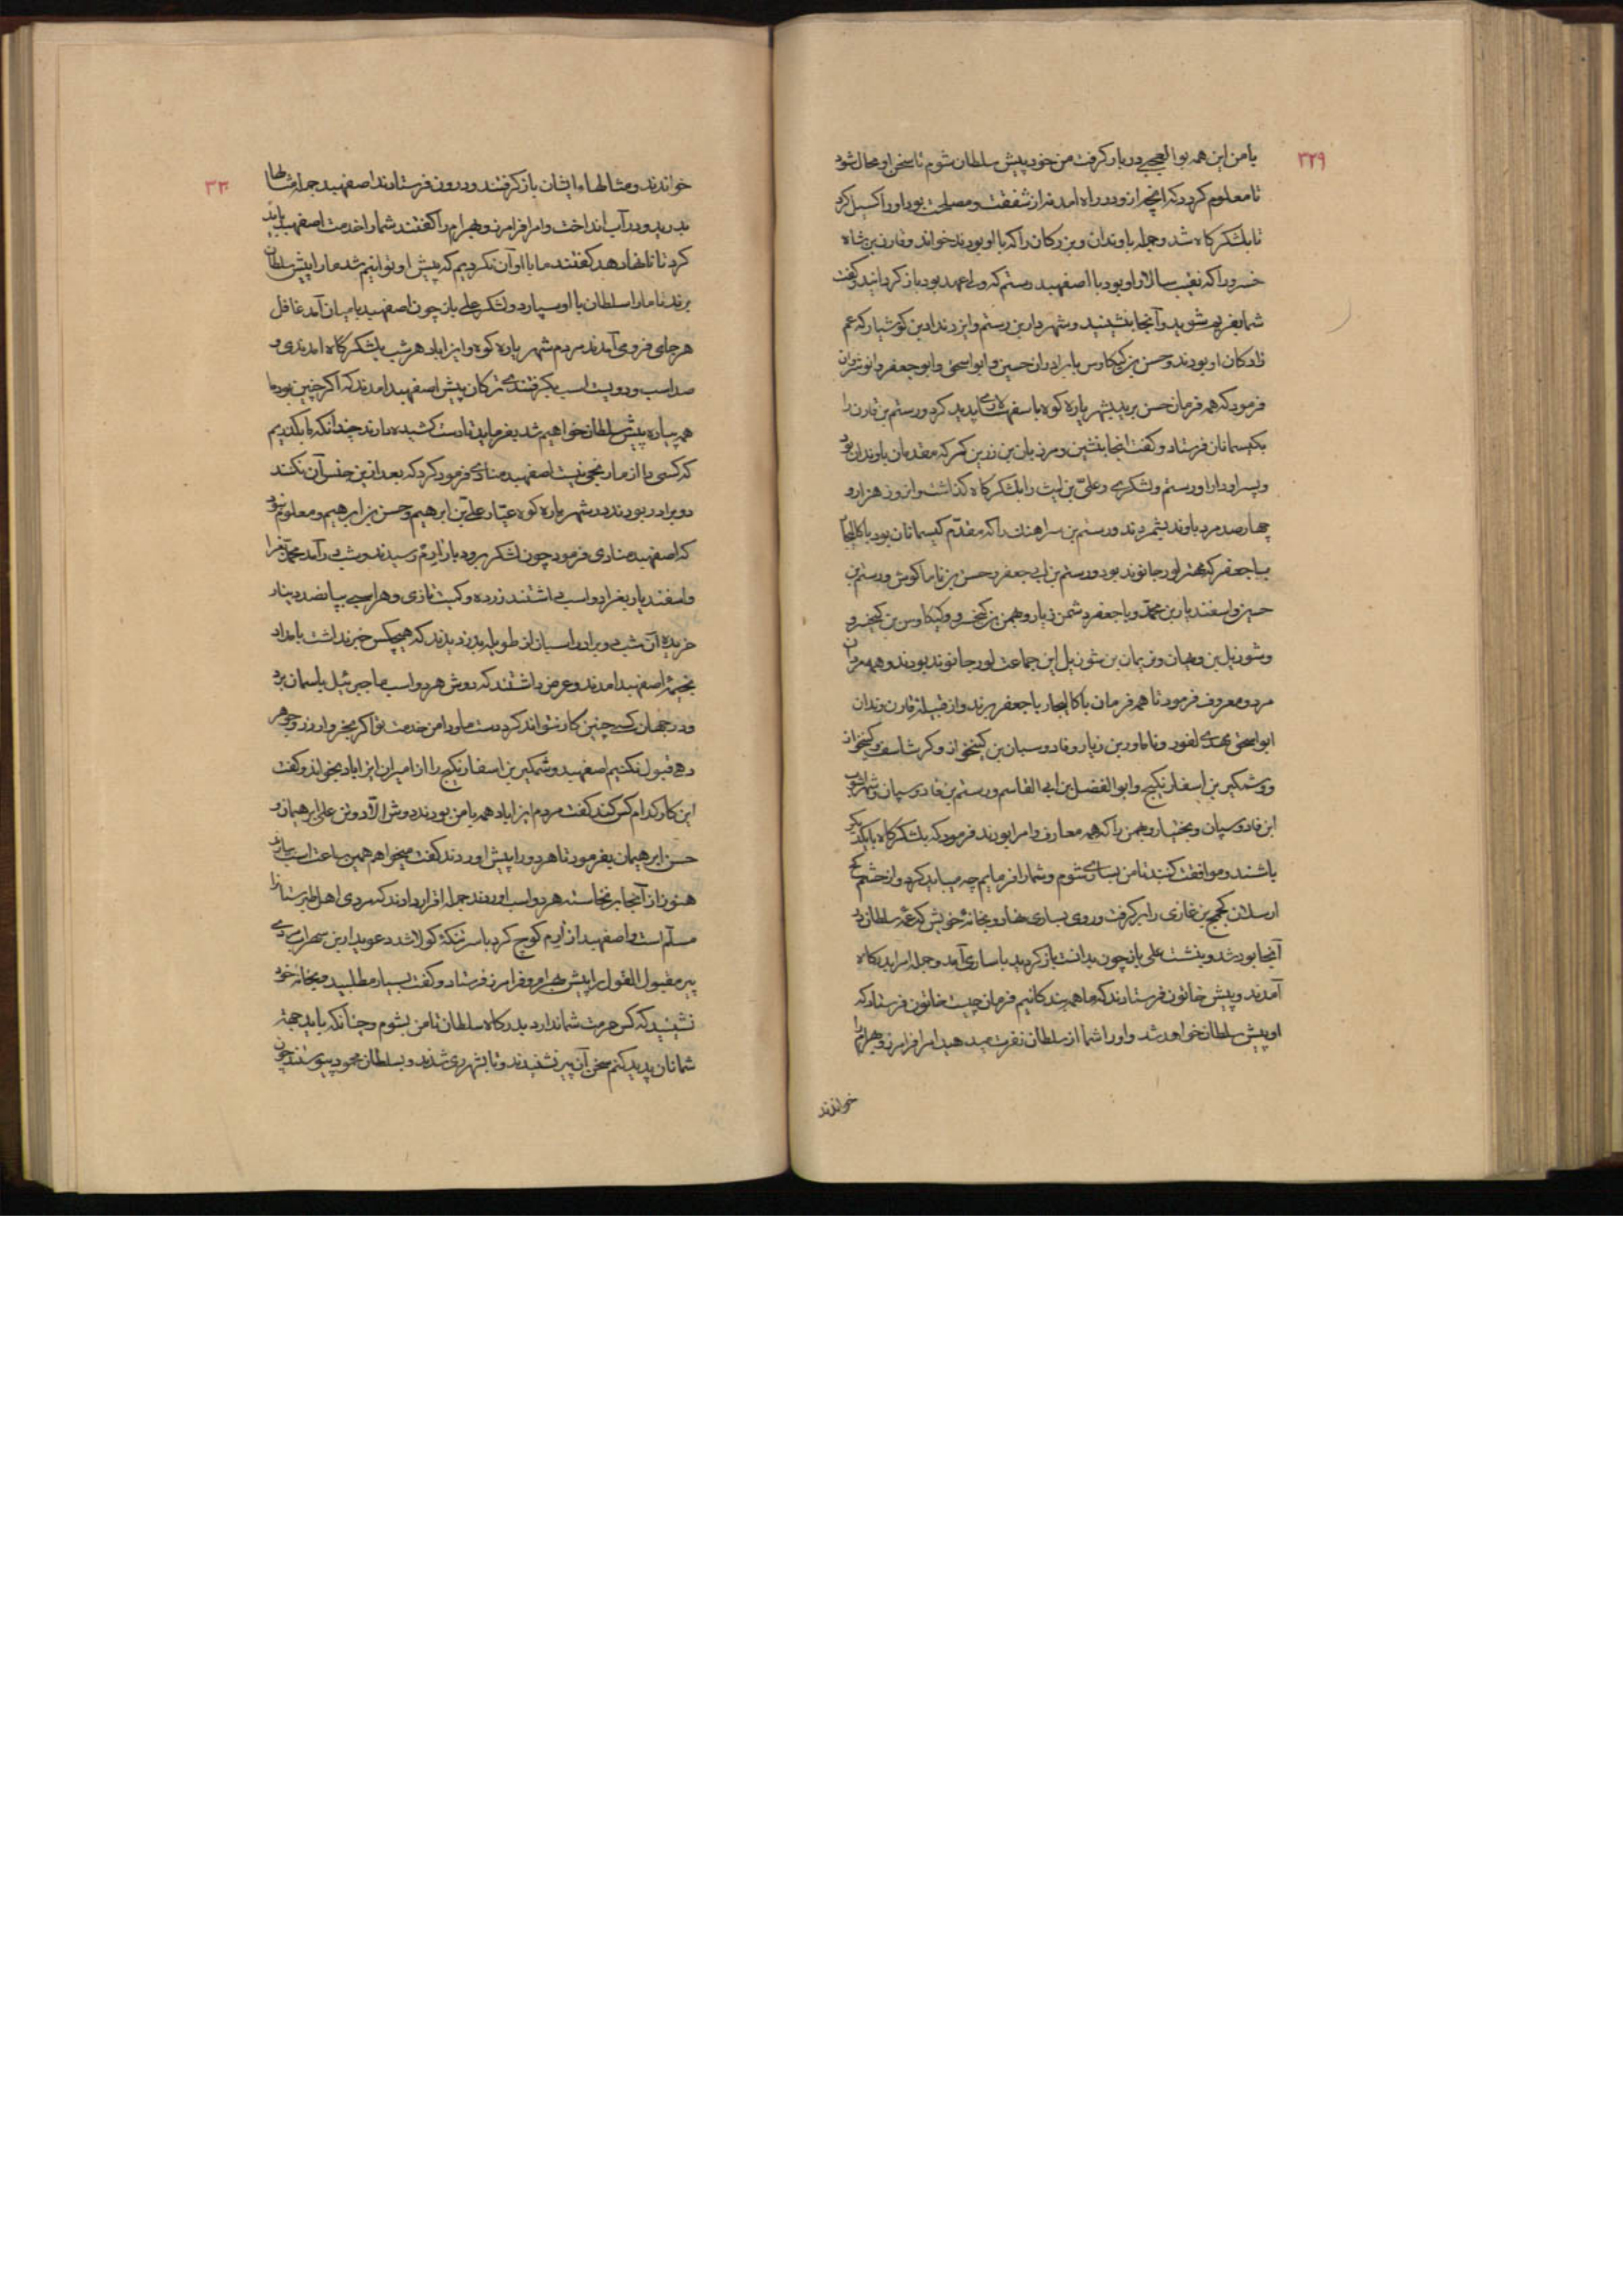 ۳۲۹
با من این همه بوالعجبی در بار گرفت من خود پیش سلطان شوم تا سخن او محال شود
تا معلوم کردند که آنچه از و در راه آمد نه از شفقت و مصلحت بود او را گسیل کرد
تا بلشکرگاه شد و جمله باوندان و بزرگان را که با او بودند خواند و قارن بن شاه
خسرو را که نقیب سالار او بود با اصفهبد رستم که ولی عهد بود باز گردانید و گفت
شما بفریم شوید و آنجا بنشینید و شهردار بن رستم و ایزدنداد بن کوشیار که عم
زادگان او بودند و حسن بن کیکاوس با برادران حسین و ابو اسحق و ابو جعفر و انوشروان
فرمود که همه فرمان حسن برید بشهریاره کوه با سفهسالاری پدید کرد و رستم بن قارن را
بکیسمانان فرستاد و گفت آنجا بنشین و مرزبان بن زرین کمر که مقدمان باوندان بود
و پسر او دارا و رستم و لشکری و علی بن لیث را بلشکرگاه گذاشت و آنروز هزار و
چهارصد مرد باوند بشمردند و رستم بن سرهنک را که مقدم کیسمانان بود باکالیجار
با جعفر که مهتر لورجانوند بود و رستم بن ابی جعفر و حسن بن ناماکوش و رستم بن
حسین و اسفندیار بن محمد و با جعفر دشمن زیار و بهمن بن کیخسرو و کیکاوس بن کیخسرو
و شوزیل بن ویهان و نریمان بن شوزیل این جماعت لورجانوند بودند و همه مردان
مرد و معروف فرمود تا همه فرمان باکالیجار با جعفر برند و از قبیله قارن وندان
ابو اسحق محمدی لفور و ناماور بن زیار و فادوسبان بن کیخواز و گرشاسف و کیخواز
و وشمگیر بن اسفار نکیج و ابو الفضل بن ابی القاسم و رستم بن فادوسپان و شهرآشوب
ابن فادوسپان و بختیار و بهمن را که همه معارف و امرا بودند فرمود که بلشکرگاه با یکدیگر
باشند و موافقت کنید تا من بساری شوم و شما را فرمایم چه میباید کرد و از خشم کج
ارسلان کجکج بن غازی را برگرفت و روی بساری نهاد و بخانهٔ خویش که عمه سلطان در
آنجا بود شد و بنشست علی باز چون بدانست باز گردید باساری آمد و جمله امرا بدرگاه
آمدند و پیش خاتون فرستادند که ما همه بندگانیم فرمان چیست خاتون فرستاد که
او پیش سلطان خواهد شد و او را شما از سلطان نفرت میدهید امرا فرامرز و بهرام را
خواندند
۳۳۰
خواندند و مثالهاء ایشان باز گرفتند و درون فرستادند اصفهبد جمله مثالها
بدرید و در آب انداخت و امرا فرامرز و بهرام را گفتند شما را خدمت اصفهبد باید
کرد تا نانها دهد گفتند ما با او آن نکردیم که پیش او توانیم شد ما را پیش سلطان
برند تا ما را سلطان با او سپارد و لشکر علی باز چون اصفهبد بامیان آمد غافل
هر جای فروی آمدند مردم شهریاره کوه و ایزاباد هر شب بلشکرگاه آمدندی و
صد اسب و دویست اسب بگرفتندی ترکان پیش اصفهبد آمدند که اگر چنین بود ما
همه پیاده پیش سلطان خواهیم شد بفرماید تا دست کشیده دارند چندانکه ما بگذریم
که کسی را از ما رنجی نیست اصفهبد منادی فرمود کرد که بعد ازین جنس آن نکنند
دو برادر بودند در شهریاره کوه عیار علی بن ابرهیم و حسن بن ابرهیم و معلوم نبود
که اصفهبد منادی فرمود چون لشکر برودبار ارم رسیدند و شب درآمد محمدآ فرا
و اسفندیار بغرا دو اسب داشتند زرده و کمیت تازی و هر اسبی بپانصد دینار
خریده آن شب دو برادر اسبان از طویله بدزدیدند که هیچکس خبر نداشت بامداد
بخیمهٔ اصفهبد آمدند و عرض داشتند که دوش هر دو اسب ما جبرئیل باسمان برد
و در جهان کسی چنین کار نتواند کرد دست ما و دامن خدمت تو اگر بخروار زر و جوهر
دهی قبول نکنیم اصفهبد وشمگیر بن اسفار نکیج را از امیران ایزاباد بخواند و گفت
این کار کدام کس کند گفت مردم ایزاباد همه با من بودند دوش الا دو تن علی ابرهیمان و
حسن ابرهیمان بفرمود تا هر دو را پیش آوردند گفت میخواهم همین ساعت اسب بیارند
هنوز از آنجا برنخاسته هر دو اسب آوردند جمله اقرار دادند که مردی اهل طبرستانرا
مسلم است و اصفهبد از ارم کوچ کرد با سر تنکهٔ کولا شد دعویدار بن سهراب مردی
پیر مقبول القول را پیش بهرام و فرامرز فرستاد و گفت بسیار مطلبید و بخانه خود
نشینید که کس حرمت شما ندارد بدرگاه سلطان تا من بشوم و چنانکه باید جهة
شما نان پدید کنم سخن آن پیر نشنیدند و تا بشهر ری شدند و بسلطان محمود پیوستند چون